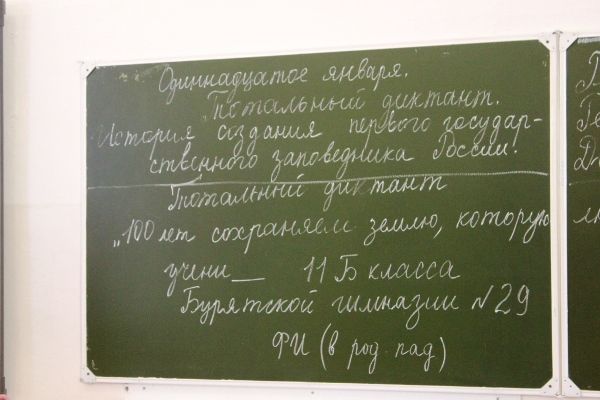 Одиннадцатое января.
Тотальный диктант.
История создания первого государ-
ственного заповедника России.
Тотальный диктант
„100 лет сохраняем землю, которую
учени__ 11 Б класса
Бурятской гимназии №29
ФИ (в род. пад)